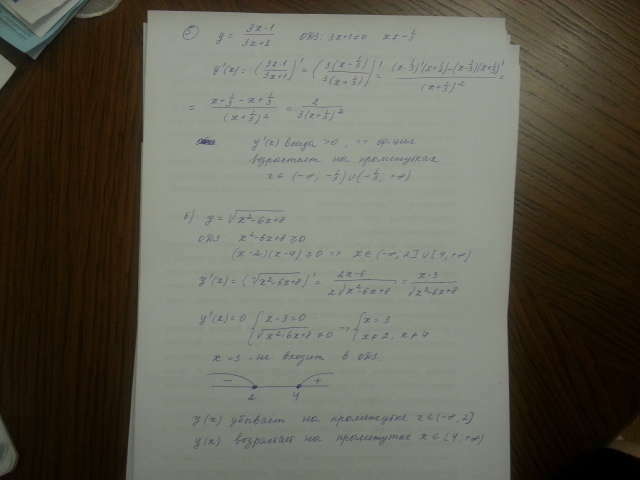 5) y = (3x-1)/(3x+1) ОДЗ: 3x+1≠0 x≠-1/3
y'(x) = ((3x-1)/(3x+1))' = (3(x-1/3)/3(x+1/3))' = ((x-1/3)'(x+1/3)-(x-1/3)(x+1/3)')/(x+1/3)² =
= (x+1/3-x+1/3)/(x+1/3)² = 2/(3(x+1/3)²)
y'(x) всегда >0, => функция
возрастает на промежутках
x∈(-∞, -1/3)∪(-1/3, +∞)
6) y = √(x²-6x+8)
ОДЗ x²-6x+8≥0
(x-2)(x-4)≥0 => x∈(-∞, 2]∪[4, +∞)
y'(x) = (√(x²-6x+8))' = (2x-6)/(2√(x²-6x+8)) = (x-3)/√(x²-6x+8)
y'(x)=0 { x-3=0 => { x=3
√(x²-6x+8)≠0 x≠2, x≠4
x=3 - не входит в ОДЗ.
- +
2 4
y(x) убывает на промежутке x∈(-∞, 2]
y(x) возрастает на промежутке x∈[4, +∞)